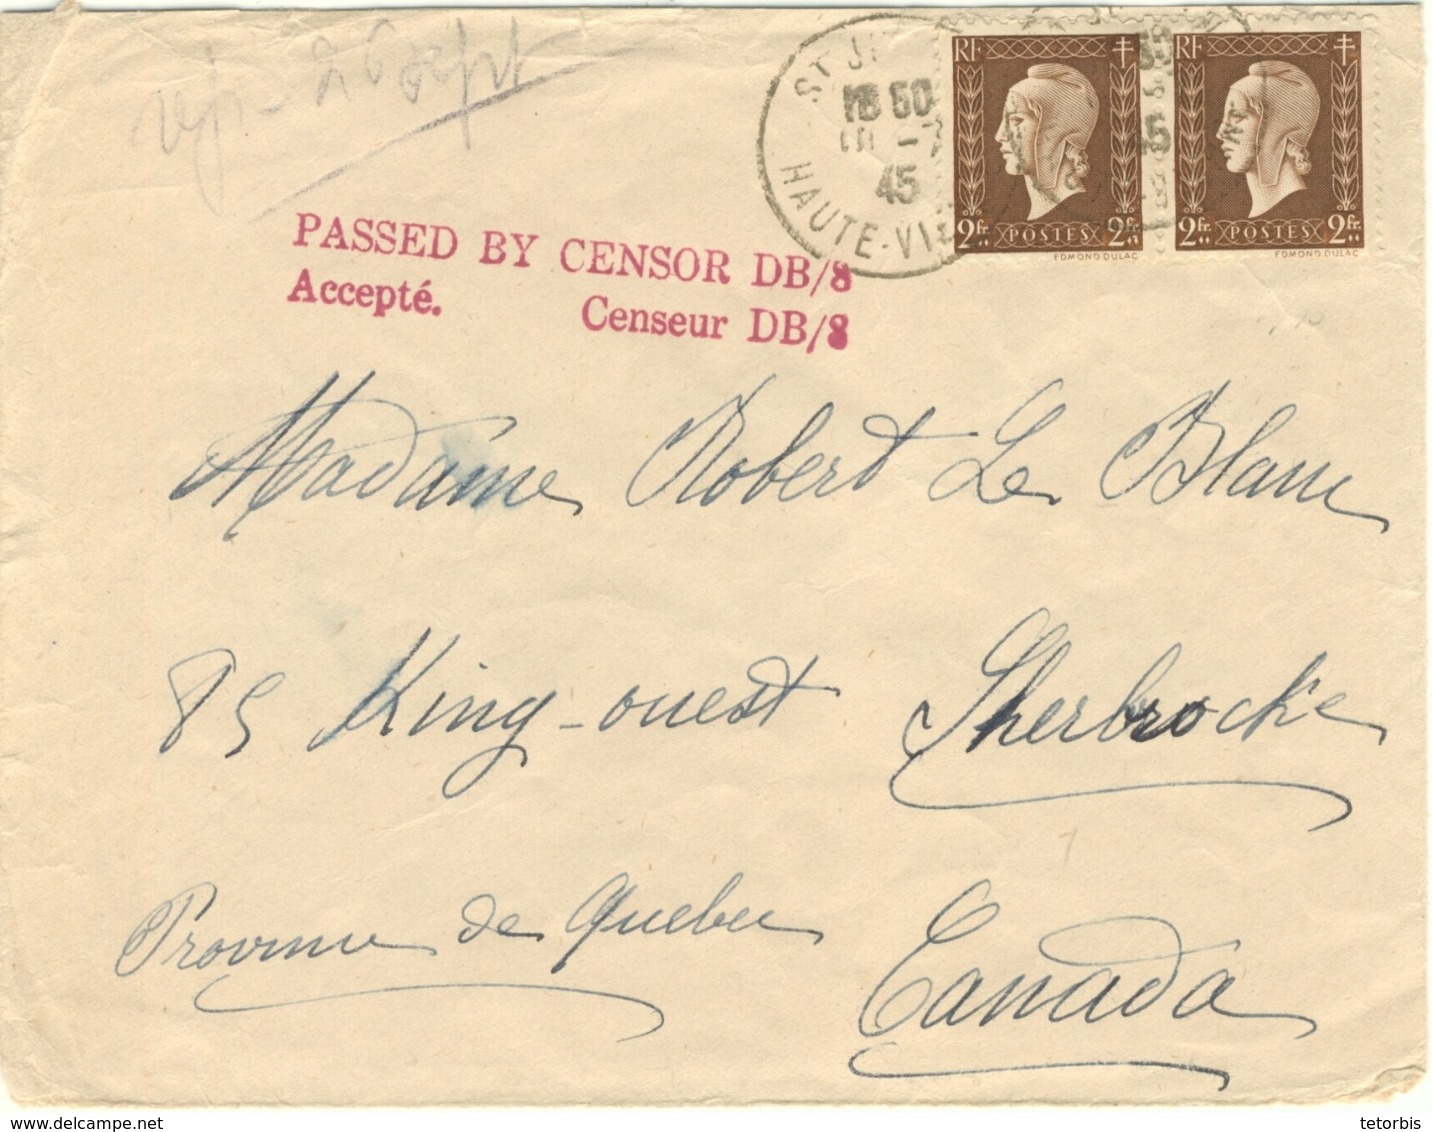 26 sept
ST J
18 50
45
HAUTE-VI
RF
2fr. POSTES 2fr.
EDMOND DULAC
RF
2fr. POSTES 2fr.
EDMOND DULAC
PASSED BY CENSOR DB/8
Accepté. Censeur DB/8
Madame Robert Le Blanc
85 King-ouest Sherbrocke
Province de Quebec
Canada
www.delcampe.net
tetorbis